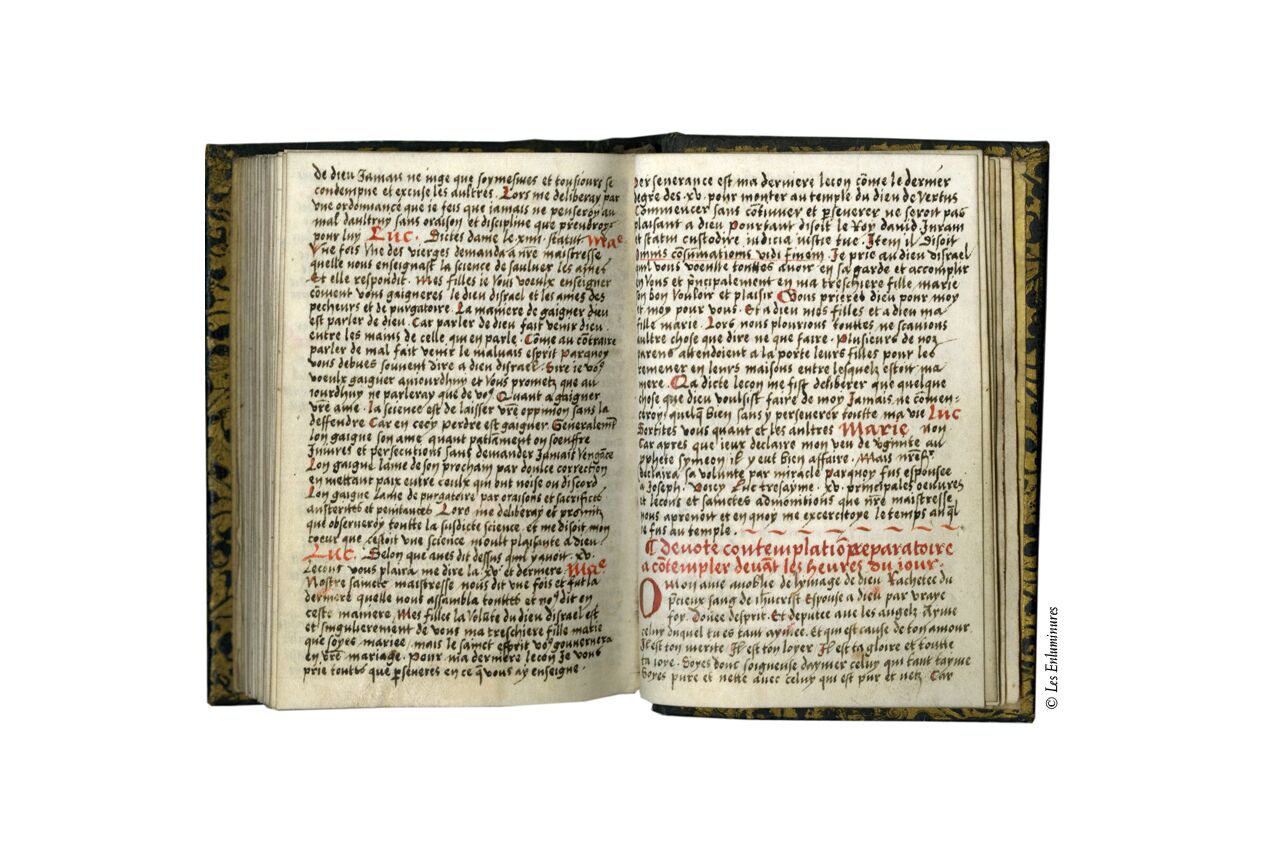 de dieu Jamais ne iuge que soymesmes et tousiours se
condempne et excuse les aultres. Lors me deliberay par
vne ordonnance que ie feis que jamais ne penseroy au
mal daultruy sans oraison et discipline que prendroye
pour luy Luc. Dictes dame le xiiii statut. Mae
Vne fois vne des vierges demanda a nre maistresse
quelle nous enseignast la science de saulver les ames
Et elle respondit. Mes filles ie vous voeulx enseigner
coment vous gaigneres le dieu disrael et les ames des
pecheurs et de purgatoire. La maniere de gaigner dieu
est parler de dieu. Car parler de dieu fait venir dieu
entre les mains de celle qui en parle. Come au cotraire
parler de mal fait venir le maluais esprit parquoy
vous debues souuent dire a dieu disrael. Sire ie vo9
voeulx gaigner aujourdhuy et vous prometz que au
iourdhuy ne parleray que de vo9. Quant a gaigner
vre ame. la science est de laisser vre oppinion sans la
deffendre Car en ceey perdre est gaigner. Generalemt
lon gaigne son ame quant patiament on soeuffre
Iniures et persecutions sans demander Jamais vengace
Lon gaigne lame de son prochain par doulce correction
en mettant paix entre ceulx qui ont noise ou discord
Lon gaigne lame de purgatoire par oraisons et sacrifices
austerites et penitances. Lors me deliberay et promitz
que obserueroy toutte la susdicte science. et me disoit mon
coeur que cestoit vne science moult plaisante a dieu.
Luc. Selon que aues dit dessus qui y auoit .xv.
Lecons vous plaira me dire la xve et derniere Mae
Nostre saincte maistresse nous dit vne fois et fut la
derniere quelle nous assembla touttes et no9 dit en
ceste maniere. Mes filles la volute du dieu disrael est
et singulierement de vous ma treschiere fille marie
que soyes mariee. mais le sainct esprit vo9 gouuernera
en vre mariage. Pour ma derniere lecon Je vous
prie touttes que pseueres en ce q vous ay enseigne.
perseuerance est ma derniere lecon come le dernier
degre des .xv. pour monter au temple du dieu de vertus
Commencer sans cotinuer et pseuerer ne seroit pas
plaisant a dieu pourtant disoit le Roy dauid Iuraui
et statui custodire iudicia iusticie tue. Item il disoit
omnis cosumationis vidi finem. Je prie au dieu disrael
quil vous voeulle touttes auoir en sa garde et accomplir
en vous et pncipalement en ma treschiere fille marie
son bon vouloir et plaisir. Vous prieres dieu pour moy
et moy pour vous. Et a dieu mes filles et a dieu ma
fille marie. Lors nous plourions touttes ne scauions
aultre chose que dire ne que faire. plusieurs de noz
parens attendoient a la porte leurs filles pour les
remener en leurs maisons entre lesquelz estoit ma
mere. La dicte lecon me fist deliberer que quelque
chose que dieu voulsist faire de moy Jamais ne comen-
ceroy quelq bien sans y perseuerer toutte ma vie Luc
Sortites vous quant et les aultres Marie non
Car apres que ieuz declaire mon veu de virginite au
pphete symeon il y eut bien affaire. Mais nresr
declaira sa volunte par miracle parquoy fus espousee
a Joseph. Voicy Luc tresayme .xv. principales oeuures
et lecons et sainctes admonitions que nre maistresse
nous aprenoit et en quoy me excercitoye le temps auql
ie fus au temple.
devote contemplatio preparatoire
a cotempler devant les heures du jour.
O mon ame anoblie de lymage de dieu Rachetee du
pcieux sang de ihucrist Espouse a dieu par vraye
foy. Douee desprit. Et deputee auec les angelz Ayme
celuy duquel tu es tant aymee. Et qui est cause de ton amour
Il est ton merite Il est ton loyer Il est ta gloire et toutte
ta ioye. Soyes donc soigneuse daymer celuy qui tant tayme
Soyes pure et nette auec celuy qui est pur et netz. Car
© Les Enluminures